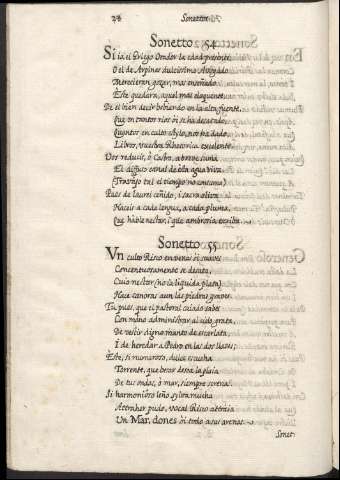 28 Sonettos
Sonetto 54
Si ia el Griego Orador la edad presente
O el de Arpinas dulcissimo Abogado
Merecieran gozar, mas enseñado
Este quedara, aquel mas eloquente.
De el bien decir bebiendo en la alta fuente,
Que en tantos rios oi se ha desatado,
Quantos en culto estylo nos ha dado
Libros, vuestra Rhetorica excelente.
Vos reducis, ò Castro, a breve suma
El difuso canal de esta agua viva:
Trabajo tal el tiempo no consuma,
Pues de laurel ceñido, i sacra oliva
Haceis a cada lengua, a cada pluma,
Que hable nectar, i que ambrosia escriba.
Sonetto 55
Un culto Risco en venas oi suaves
Concentuosamente se desata,
Cuio nectar (no ia liquida plata)
Hace canoras aun las piedras graves.
Tu, pues, que el pastoral caiado sabes
Con mano administrar al cielo grata,
De vestir digno manto de escarlata,
I de heredar a Pedro en las dos llaves;
Este, si numeroso, dulce escucha
Torrente, que besar desea la plaia
De tus ondas, ò mar, siempre serenas.
Si harmonioso leño sylva mucha
Atraher pudo, vocal Risco attraia
Un Mar, dones oi todo a sus arenas.
Sonet